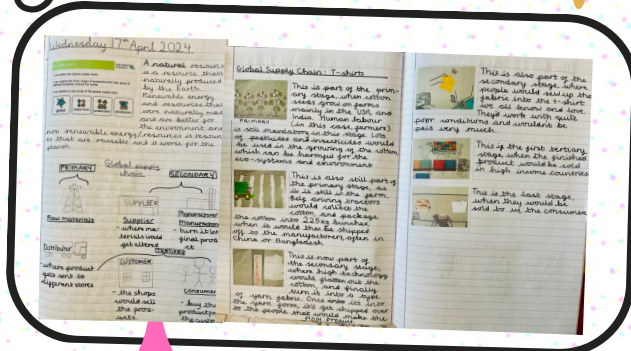 Wednesday 17th April 2024.
A natural resource
is a resource that's
naturally produced
by the Earth.
Meanwhile energy
and resources that
were naturally made
and are better for
the environment, and
non renewable energy/resources is resour
ces that are reusable and is worse for the
planet.
PRIMARY
Global supply
chain
SECONDARY
SUPPLIER
Raw materials
Supplier
- where ma-
terials would
get altered
Manufacturer
- turn it into
final prod
uct
Distributor
- where product
gets sent to
different stores
TERTIARY
CUSTOMER
- the shops
would sell
the prod-
ucts
Consumer
- buy the
Global Supply Chain: T-shirts
PRIMARY
This is part of the prim-
ary stage, when cotton
seeds grow on farms
mainly in the USA, and
India. Human labour
(in this case, farmers)
is still mandatory in this stage. Lots
of pesticides and insecticides would
be used in the growing of the cotton,
which can be harmful for the
eco-systems and environment.
This is also still part of
the primary stage, as
it is still in the farm.
Self driving tractors
would collect the
cotton, and package
the cotton into 225kg bunches,
when it would then be shipped
off to the manufacturers, often in
China or Bangladesh.
This is now part of
the secondary stage,
where high technology
would flatten out the
cotton, and finally
turn it into a type
of yarn fabric. Once it's into
the yarn form, it's get shipped over
to the people that would make the
This is also part of the
secondary stage, where
people would sew up the
fabric into the t-shirt
we all know and love.
They'd work with quite
poor conditions and wouldn't be
paid very much.
This is the first tertiary
stage, when the finished
product would be sold
in high income countries.
This is the last stage,
when they would be
sold to us the consumers